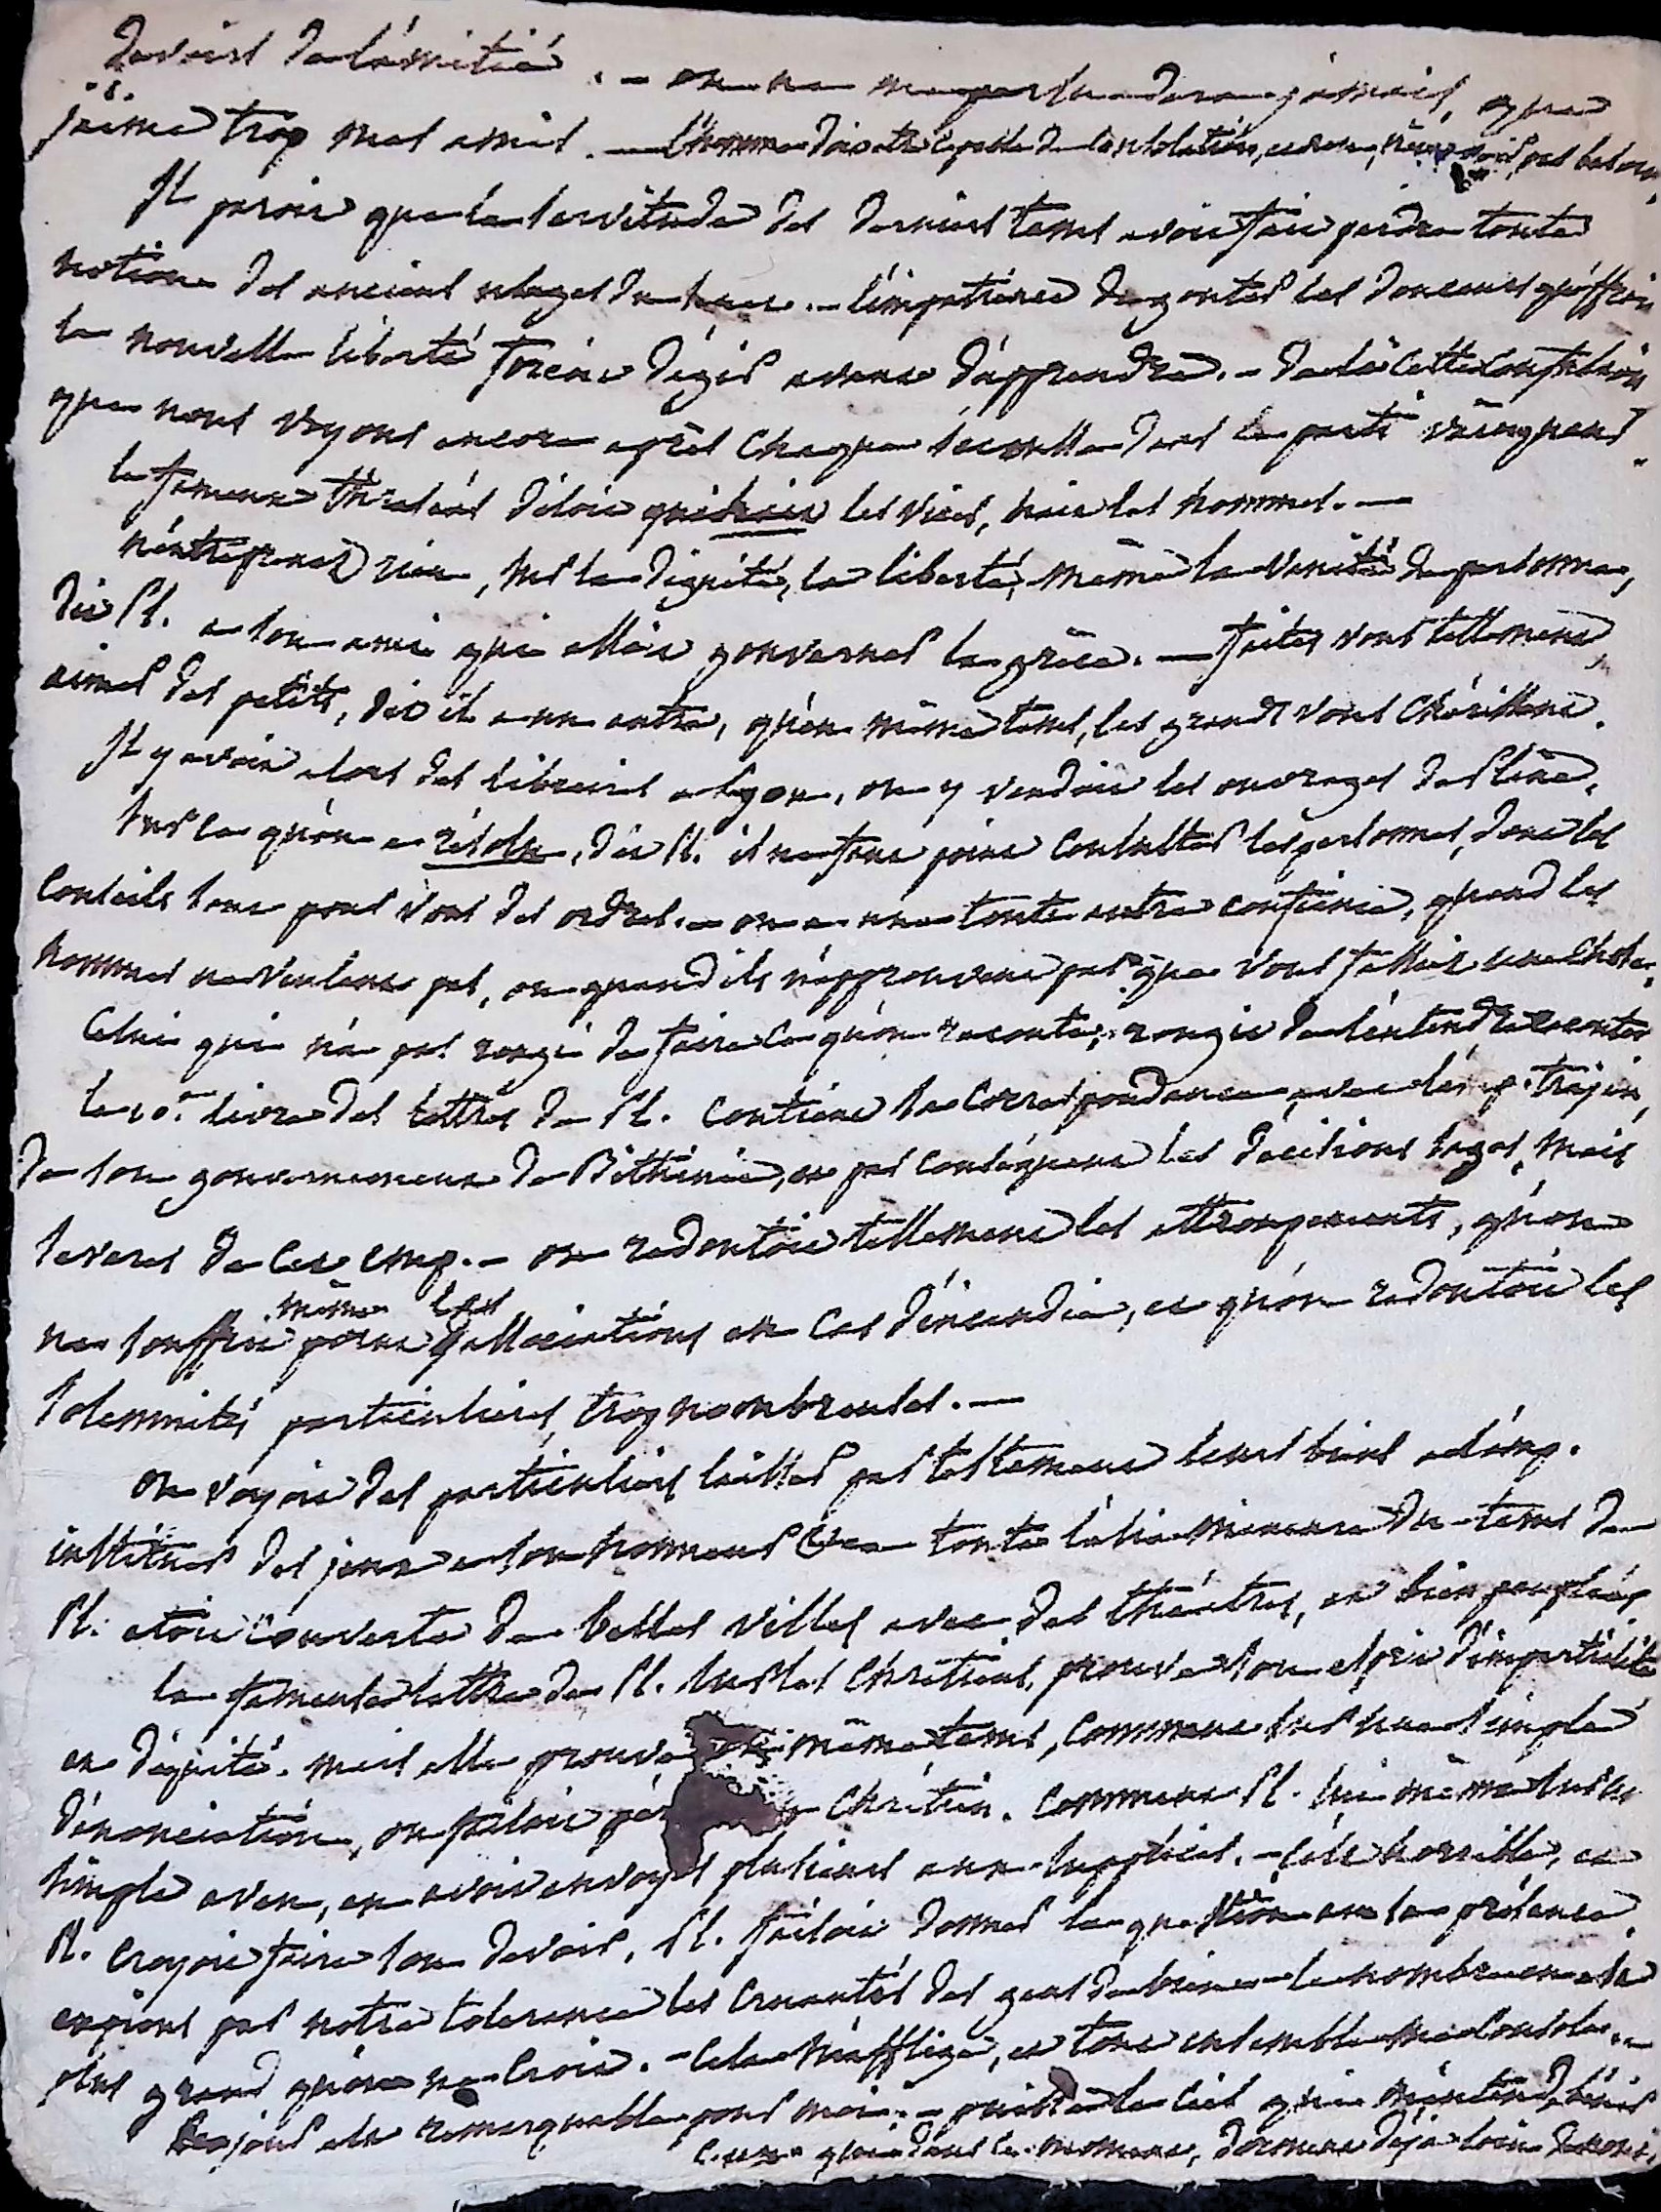 devoirs de l'amitié. — on ne me persuadera jamais, que
j'aime trop mes amis. — l'homme doit être capable de consolation, et non, n'en avoir pas besoin.
Il paroit que la servitude des derniers tems avoit fait perdre toute
notion des anciens usages du sénat. — l'impatience de goûter les douceurs qu'offroit
la nouvelle liberté forçait d'agir avant d'apprendre. — de là cette confusion
que nous voyons encore après chaque secousse dans le parti vainqueur.
le fameux Thraséas disoit qui hait les vices, hait les hommes. —
n'entreprenez rien, sur la dignité, la liberté, même la vanité de personne,
dit Pl. a son ami qui alloit gouverner la grèce. — faites vous tellement
aimer des petits, dit il a un autre, qu'en même tems, les grands vous chérissent.
Il y avoit alors des libraires a Lyon, on y vendoit les ouvrages de Pline.
sur ce qu'on a résolu, dit Pl. il ne faut point consulter les personnes, dont les
conseils sont pour vous des ordres. — on a une toute autre confiance, quand les
hommes ne veulent pas, ou quand ils n'approuvent pas que vous fassiez une chose.
Celui qui n'a pas rougi de faire ce qu'on raconte, rougit de l'entendre raconter
le 10.e livre des lettres de Pl. contient sa correspondance avec l'emp. trajan,
de son gouvernement de Bithinie, et par conséquent les décisions sages, mais
severes de cet emp. — on redoutoit tellement les attroupements, qu'on
ne souffrit point même les associations en cas d'incendie, et qu'on redoutoit les
solemnités particulieres, trop nombreuses. —
On voyoit des particuliers laisser par testament leurs biens a l'emp.
instituer des jeux a son honneur toute l'asie mineure du tems de
Pl. etoit couverte de belles villes avec des théatres, et bien peuplées
la fameuse lettre de Pl. sur les Chrétiens, prouve son esprit d'impartialité
et d'équité. mais elle prouve en même tems, comment sur une simple
dénonciation, on faisoit Chrétien. comment Pl. lui même sur le
simple aveu, en avoit envoyé plusieurs aux supplices. — c'est horrible, et
Pl. croyoit faire son devoir, Pl. faisoit donner la question en sa présence.
expions par notre tolerance les cruautés des gens de bien — le nombre en est
plus grand qu'on ne croit. — Cela m'afflige, et tout ensemble me console. —
jour est remarquable pour moi. — puisse le ciel qui m'entend, bénir
ceux qui dans ce moment, dorment déja loin de moi.